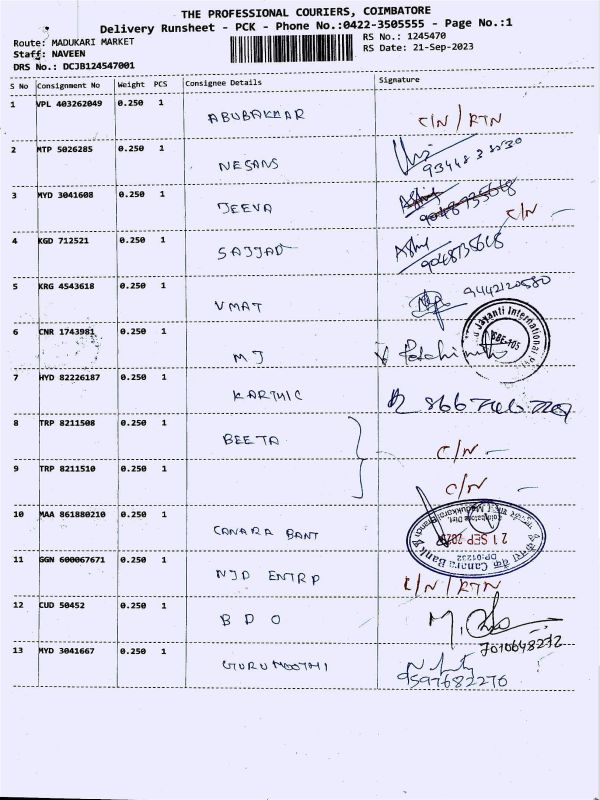 THE PROFESSIONAL COURIERS, COIMBATORE
Delivery Runsheet - PCK - Phone No.:0422-3505555 - Page No.:1
Route: MADUKARI MARKET
RS No.: 1245470
Staff: NAVEEN
RS Date: 21-Sep-2023
DRS No.: DCJB124547001
S No Consignment No Weight PCS Consignee Details Signature
1 VPL 403262049 0.250 1 ABUBAKKAR C/N / RTN
2 MTP 5026285 0.250 1 NESANS
3 MYD 3041608 0.250 1 JEEVA 9048735648 C/N
4 KGD 712521 0.250 1 SAJJAD 9048735648
5 KRG 4543618 0.250 1 VMAT 9442120580
6 CNR 1743981 0.250 1 MJ
Jayanti International
CBE-105
7 HYD 82226187 0.250 1 KARTHIC
8 TRP 8211508 0.250 1 BEETA C/N
9 TRP 8211510 0.250 1 C/N
10 MAA 861880210 0.250 1 CANARA BANT
Canara Bank
21 SEP 2023
DP:01232
Coimbatore Dist.
11 GGN 600067671 0.250 1 NJD ENTRP C/N / RTN
12 CUD 50452 0.250 1 B D O 7010648272
13 MYD 3041667 0.250 1 GURUMOOTHI 9597682276